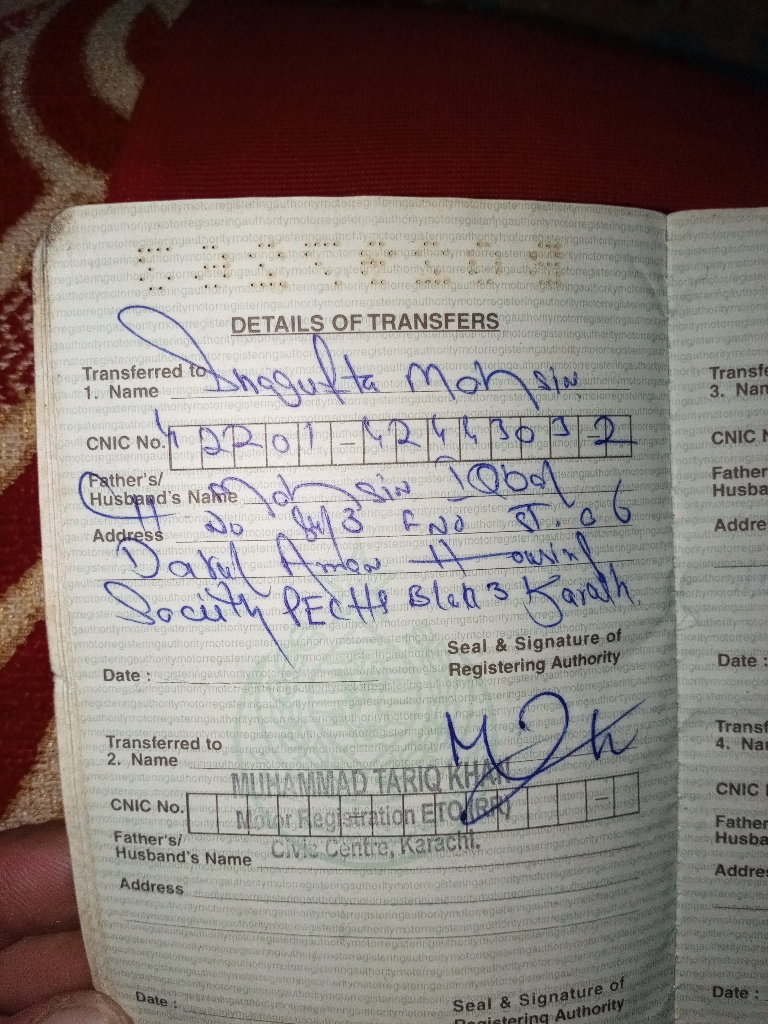 DETAILS OF TRANSFERS
Transferred to
1. Name Shagufta Mohsin
CNIC No. 42201-4244303 2
Father's/
Husband's Name Mohsin Iqbal
Address No 3 2nd 06
Darul Aman Housing
Society PECHS Block 3 Karachi
Date :
Seal & Signature of
Registering Authority
Transferred to
2. Name
MUHAMMAD TARIQ KHAN
Motor Registration ETO (BR)
CNIC No.
Civic Centre, Karachi.
Father's/
Husband's Name
Address
Date :
Seal & Signature of
Registering Authority
Transfe
3. Nam
CNIC N
Father
Husba
Addre
Date :
Transf
4. Na
CNIC
Father
Husba
Addre
Date :